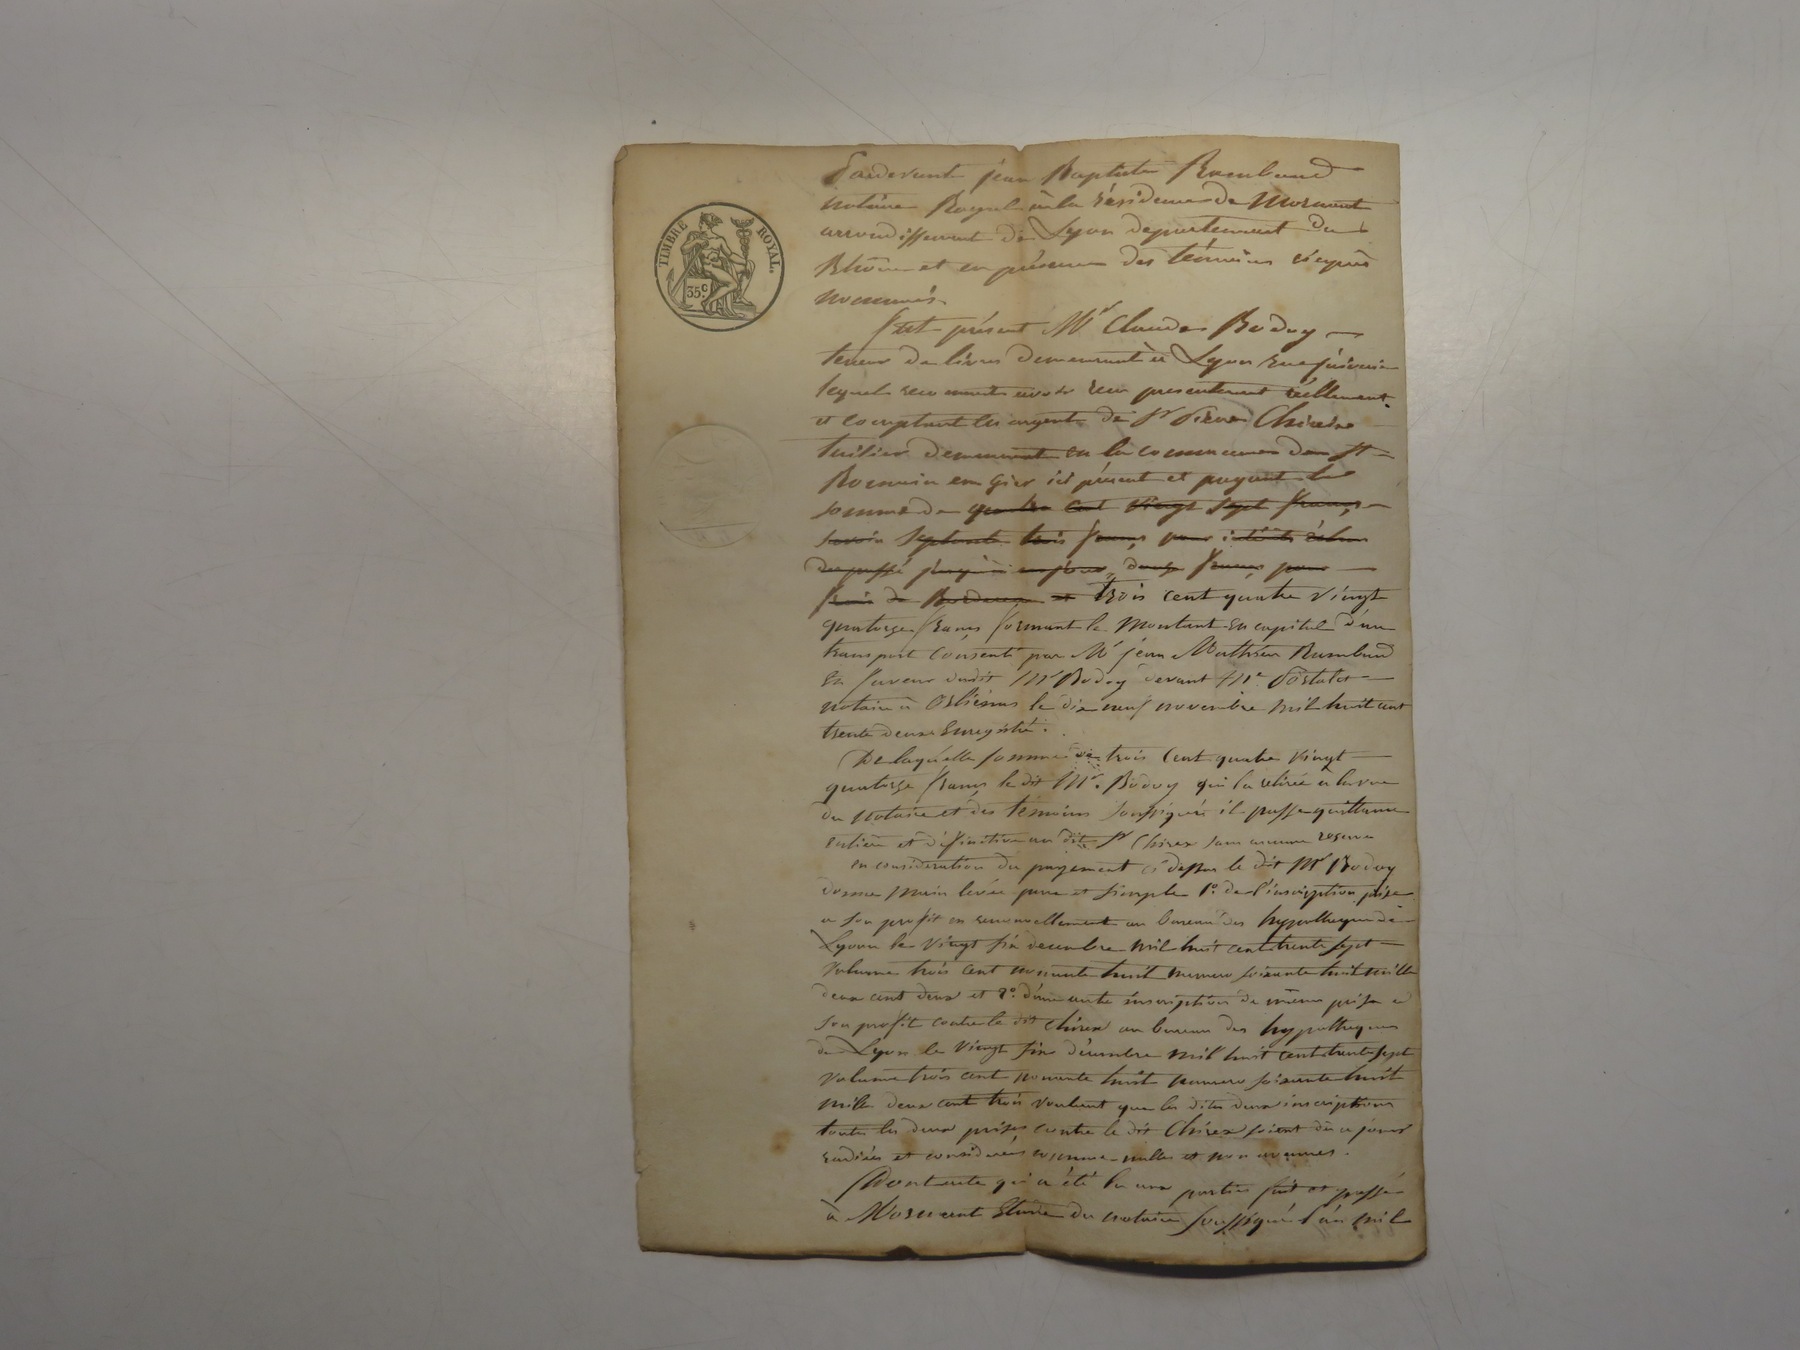 TIMBRE ROYAL.
35c.
Pardevant jean Baptiste Rambaud
notaire Royal à la résidence de Mornant
arrondissement de Lyon departement du
Rhône et en présence des témoins ci après
nommés.
Est présent Mr Claude Boduy
teneur de livres demeurant à Lyon rue
lequel reconnait avoir recu presentement réellement
et comptant en argent de Sr Pierre Chirex
tuilier demeurant en la commune de St
Romain en Gier ici présent et payant la
somme de quatre cent vingt sept francs
savoir septante trois francs pour intérêts échus
du passé jusqu'à ce jour, douze francs pour
frais de Bordereau et trois cent quatre vingt
quatorze francs formant le montant en capital d'un
transport consenti par Mr jean Mathieu Rambaud
en faveur dudit Mr Boduy devant Me
notaire à Orliénas le dix neuf novembre mil huit cent
trente deux Enregistré.
De laquelle somme de trois cent quatre vingt
quatorze francs le dit Mr. Boduy qui la retirée à la vue
du notaire et des temoins soussignés il passe quittance
entière et définitive au dit Sr Chirex sans aucune reserve
en consideration du payement ci dessus le dit Mr Boduy
donne main levée pure et simple 1o. de l'inscription prise
a son profit en renouvellement au bureau des hypotheques de
Lyon le vingt six decembre mil huit cent trente sept
volume trois cent nonante huit numero soixante huit mille
deux cent deux et 2o. d'une autre inscription de même prise a
son profit contre le dit Chirex au bureau des hypotheques
de Lyon le vingt six décembre mil huit cent trente sept
volume trois cent nonante huit numero soixante huit
mille deux cent trois voulant que les dites deux inscriptions
toutes les deux prises contre le dit Chirex soient dès ce jour
radiées et considerées comme nulles et non avenues.
Dont acte qui a été lu aux parties fait et passé
à Mornant Etude du notaire soussigné l'an mil